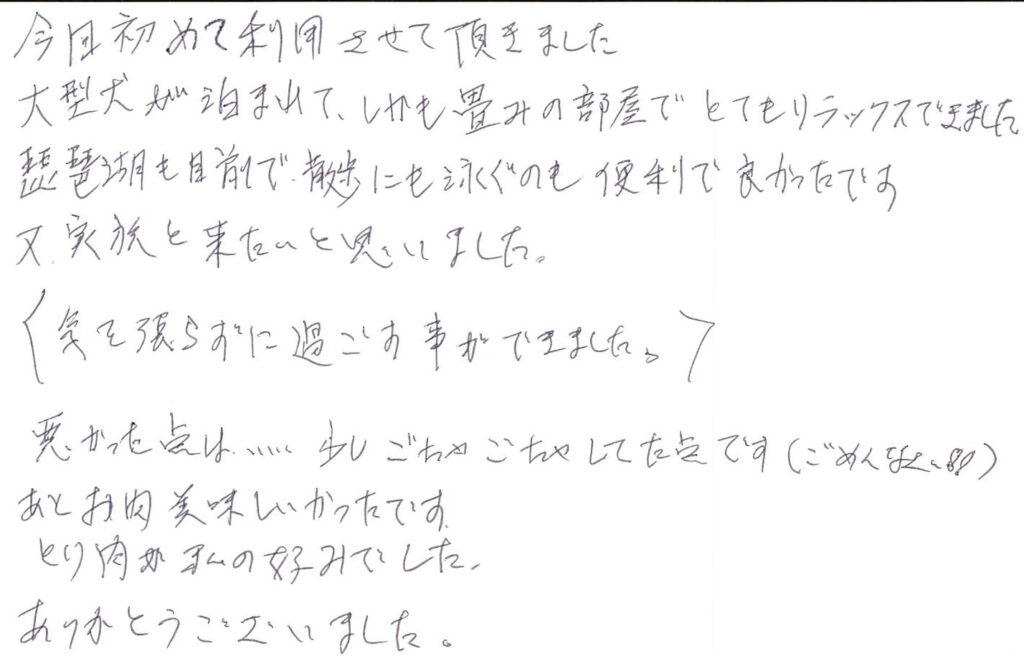 今回初めて利用させて頂きました
大型犬が泊まれて、しかも畳みの部屋でとてもリラックスできました
琵琶湖も目前で、散歩にも泳ぐのも便利で良かったです
又、家族と来たいと思いました。
〈気を張らずに過ごす事ができました。〉
悪かった点は、‥‥‥ 少しごちゃごちゃしてた点です(ごめんなさい)
あとお肉美味しいかったです。
とり肉が私の好みでした。
ありがとうございました。